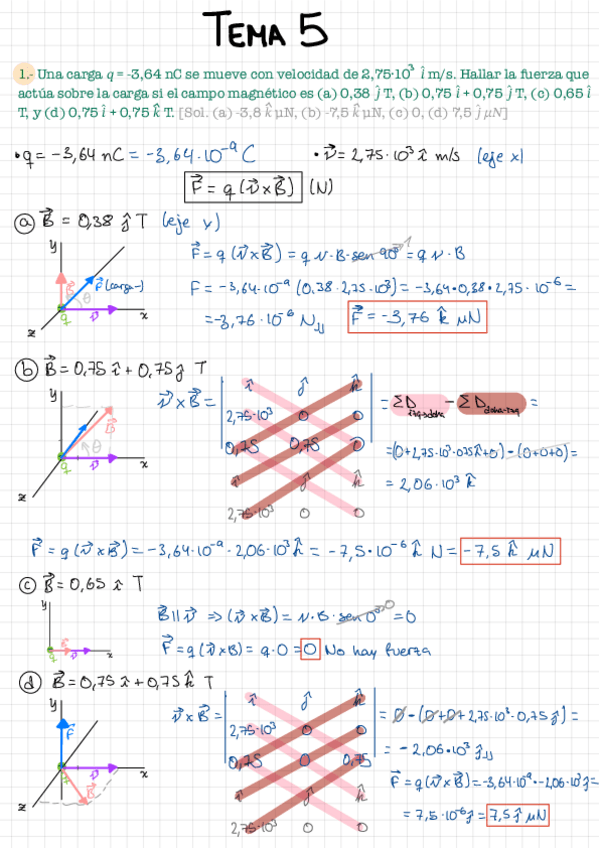 TEMA 5
1.- Una carga q = -3,64 nC se mueve con velocidad de 2,75·10³ î m/s. Hallar la fuerza que
actúa sobre la carga si el campo magnético es (a) 0,38 ĵ T, (b) 0,75 î + 0,75 ĵ T, (c) 0,65 î
T, y (d) 0,75 î + 0,75 k̂ T. [Sol. (a) -3,8 k̂ µN, (b) -7,5 k̂ µN, (c) 0, (d) 7,5 ĵ µN]
• q = -3,64 nC = -3,64·10⁻⁹ C • v⃗ = 2,75·10³ î m/s (eje x)
F⃗ = q (v⃗ x B⃗) (N)
(a) B⃗ = 0,38 ĵ T (eje y)
F⃗ = q (v⃗ x B⃗) = q v·B·sen 90° 1 = q v·B
F = -3,64·10⁻⁹ (0,38·2,75·10³) = -3,64·0,38·2,75·10⁻⁶ =
= -3,76·10⁻⁶ N F⃗ = -3,76 k̂ µN
y B⃗ F⃗ (carga -) θ q v⃗ x z
(b) B⃗ = 0,75 î + 0,75 ĵ T
v⃗ x B⃗ = | î ĵ k̂ | = ΣD - ΣD =
2,75·10³ 0 0
0,75 0,75 0 = (0 + 2,75·10³·0,75 k̂ + 0) - (0+0+0) =
î ĵ k̂ = 2,06·10³ k̂
2,75·10³ 0 0
y B⃗ θ q v⃗ x z
F⃗ = q (v⃗ x B⃗) = -3,64·10⁻⁹ · 2,06·10³ k̂ = -7,5·10⁻⁶ k̂ N = -7,5 k̂ µN
(c) B⃗ = 0,65 î T
B⃗ || v⃗ ⇒ (v⃗ x B⃗) = v·B·sen 0° 0 = 0
F⃗ = q (v⃗ x B⃗) = q·0 = 0 No hay fuerza
y q v⃗ x
(d) B⃗ = 0,75 î + 0,75 k̂ T
v⃗ x B⃗ = | î ĵ k̂ | = 0 - (0 + 0 + 2,75·10³·0,75 ĵ) =
2,75·10³ 0 0
0,75 0 0,75 = -2,06·10³ ĵ
î ĵ k̂ F⃗ = q (v⃗ x B⃗) = -3,64·10⁻⁹·-2,06·10³ ĵ =
2,75·10³ 0 0 = 7,5·10⁻⁶ ĵ = 7,5 ĵ µN
y F⃗ q v⃗ x B⃗ z